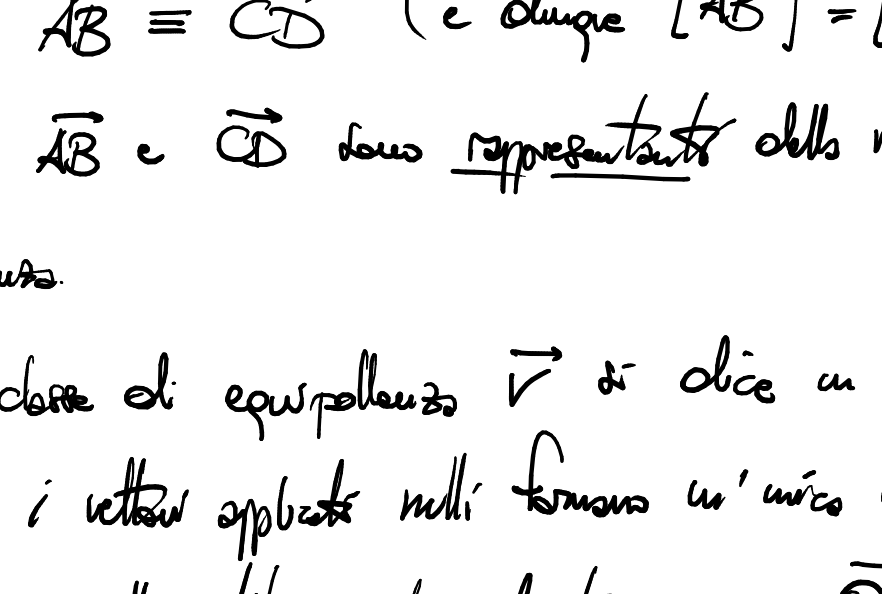 AB ≡ CD (e dunque [AB] = [
AB e CD sono rappresentanti della
nza.
classe di equipollenza V si dice un
i vettori applicati nulli formano un'unica